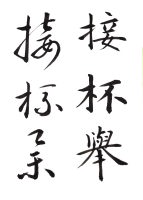 接杯舉
接杯舉